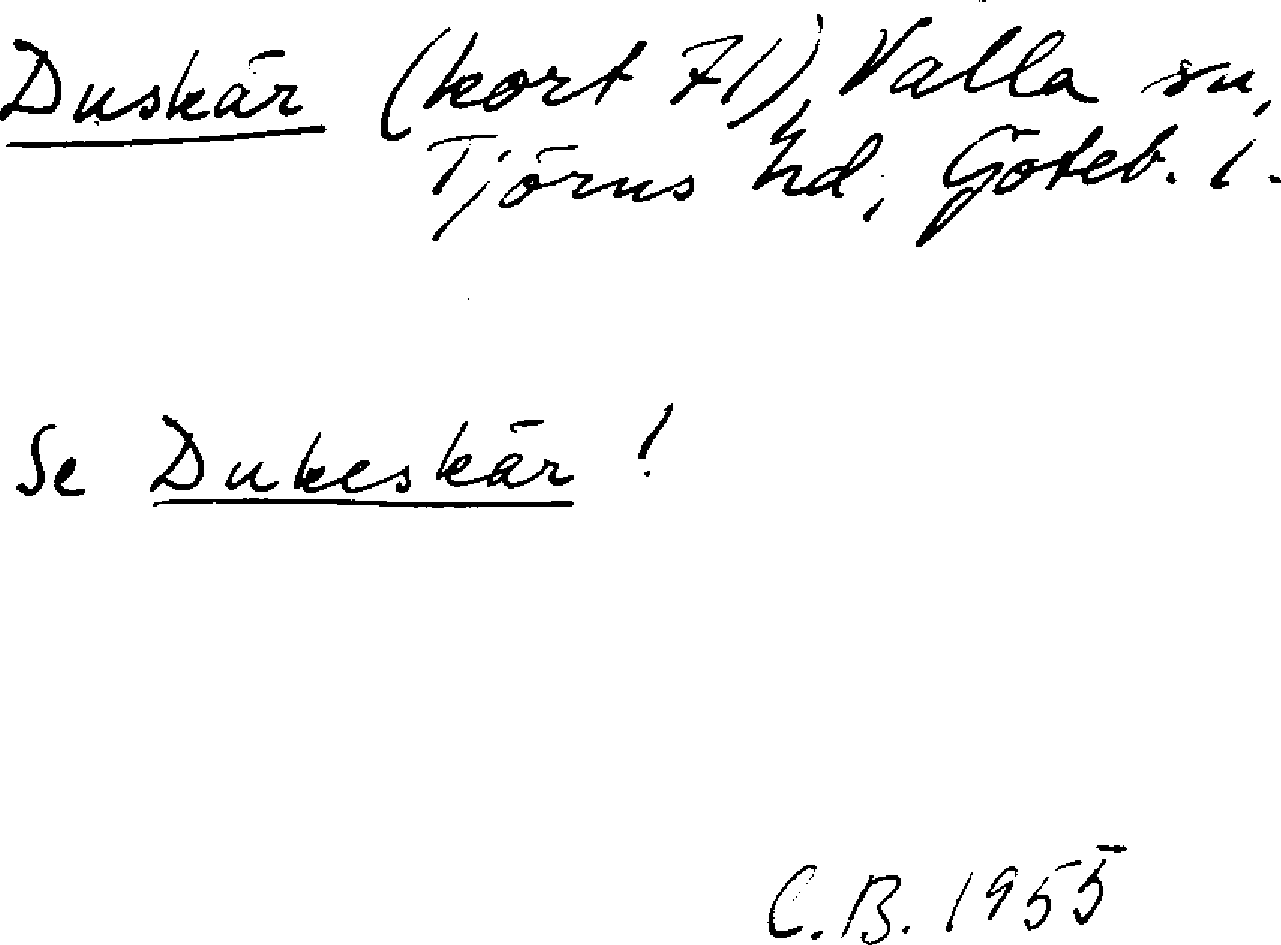 Duskär (kort 71), Valla sn,
Tjörns hd, Göteb. l.
Se Dukeskär !
C.B. 1955